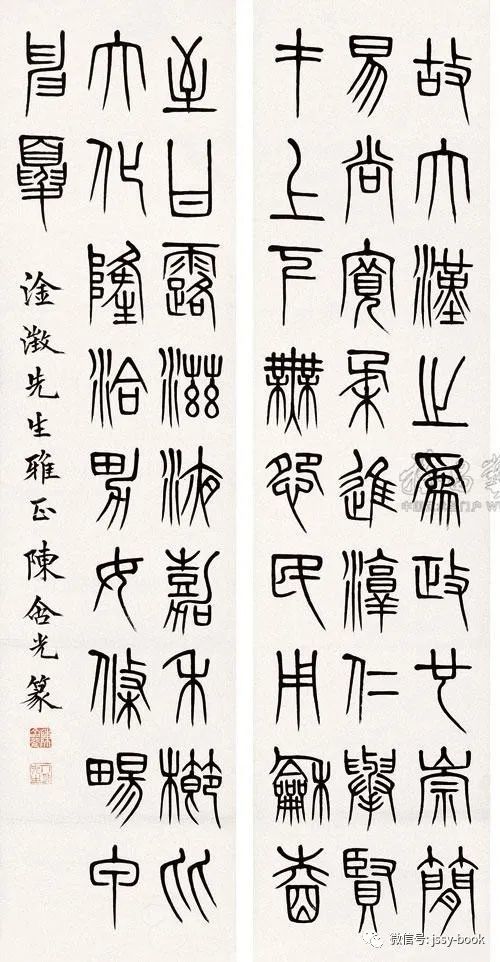 故大漢之爲政也崇簡
易尚寬柔進淳仁舉賢
才上下無怨民用龢睦
至甘露滋液嘉禾櫛比
大化隆洽男女條暢
淦澂先生雅正 陳含光篆
微信号: jssy-book